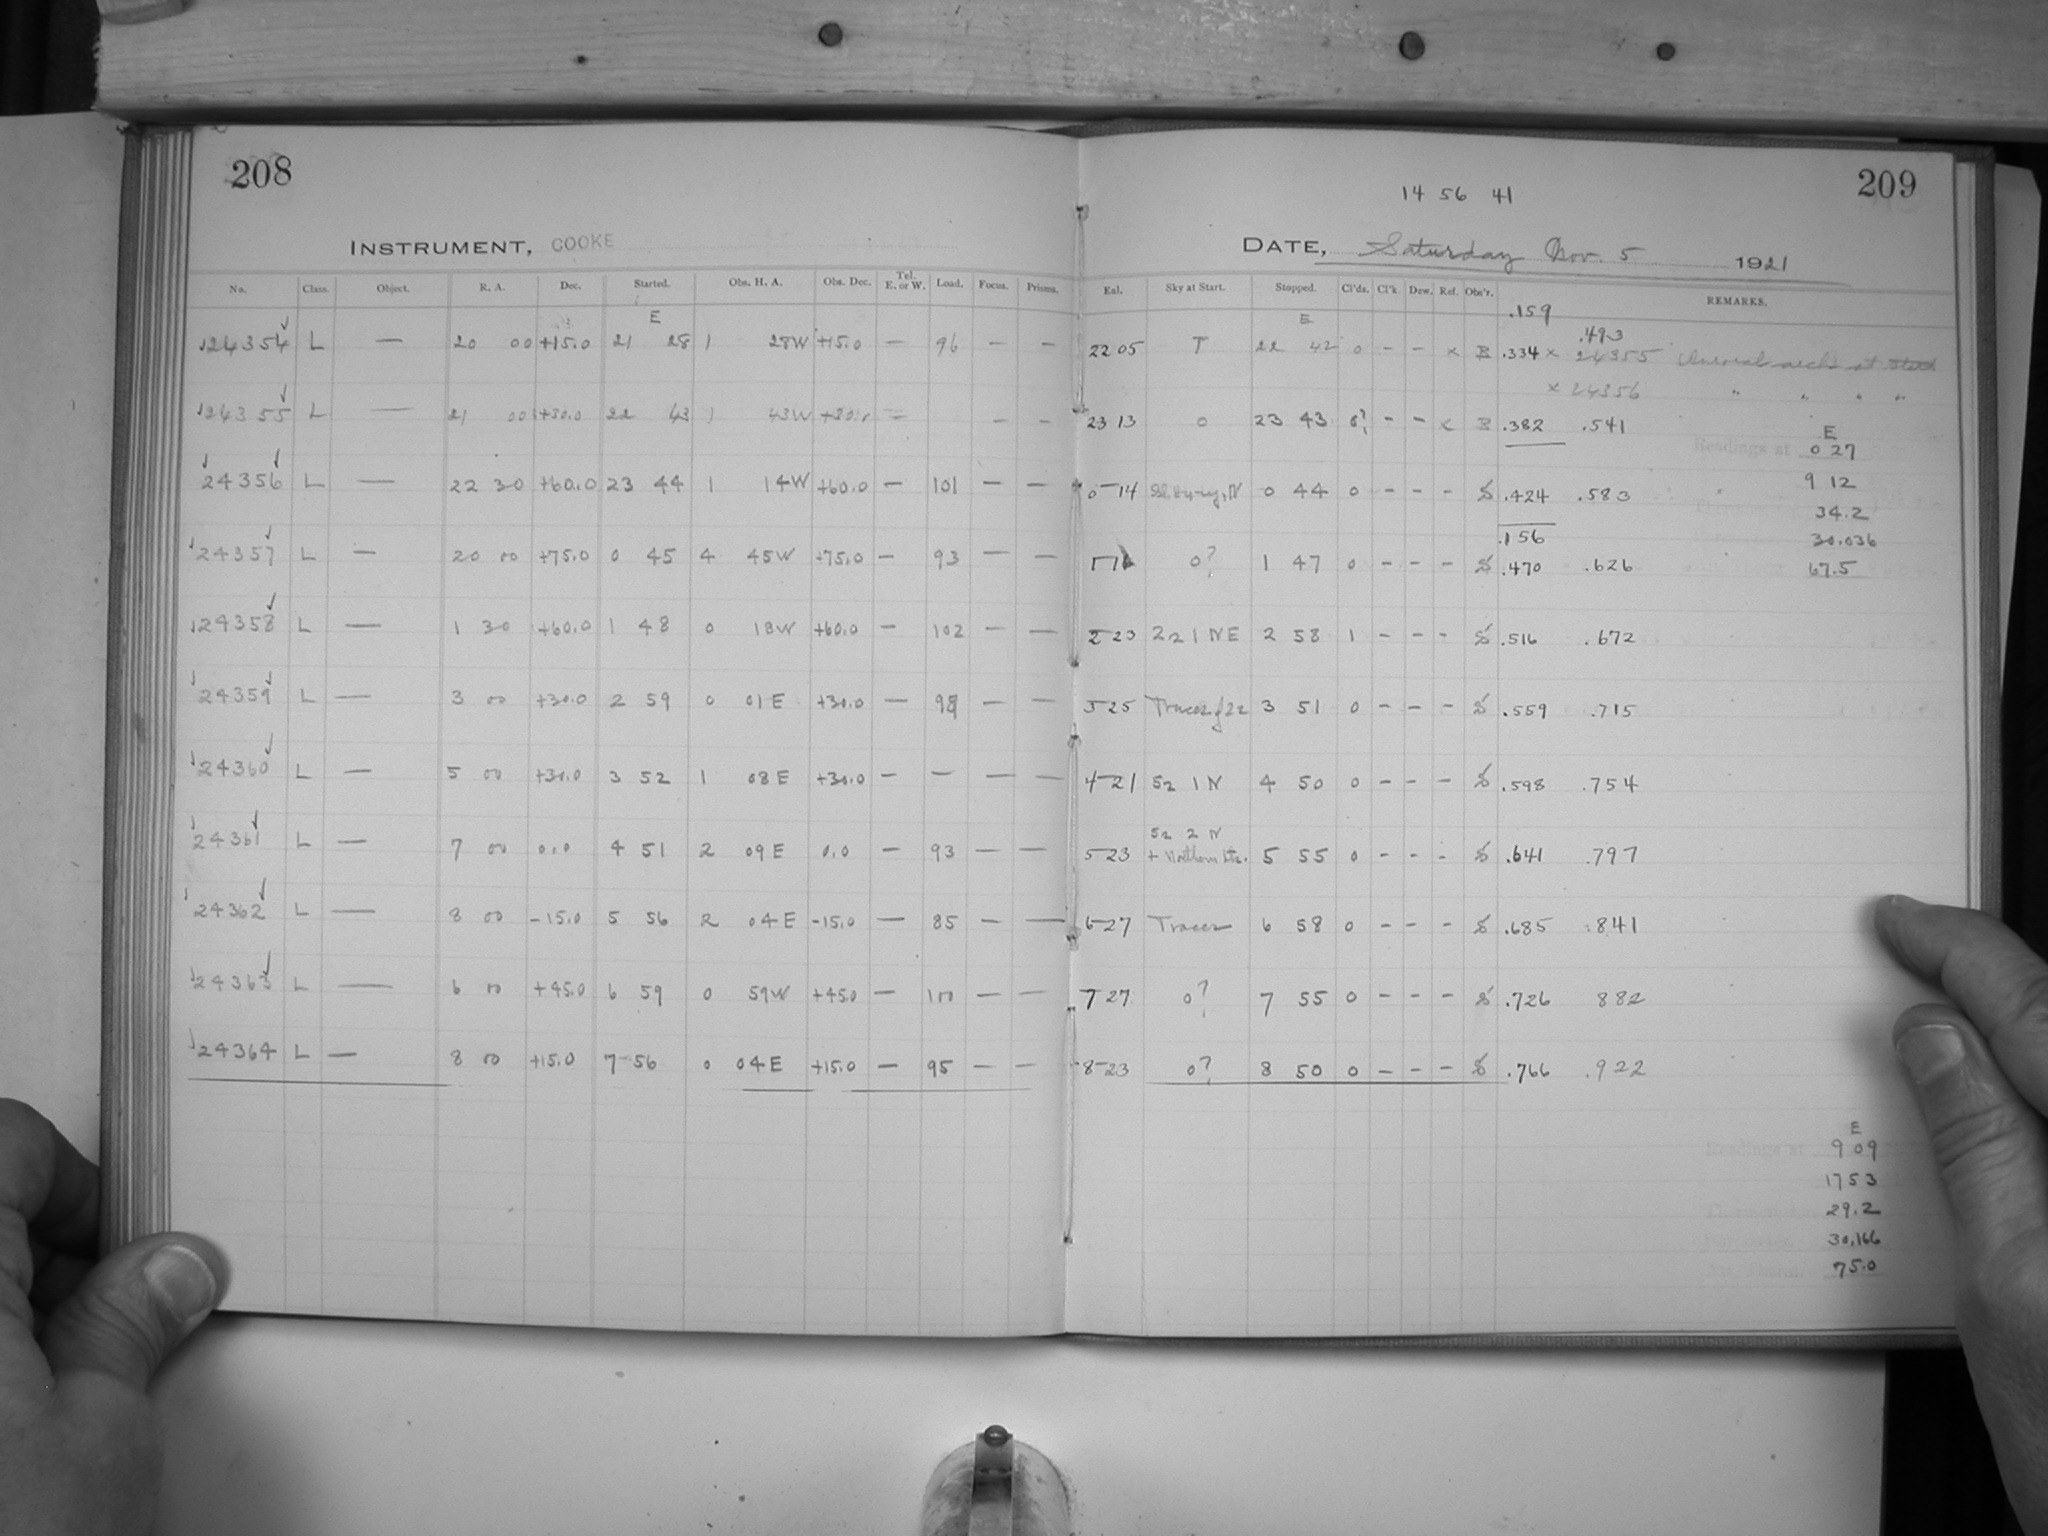 208
INSTRUMENT, COOKE
No. Class. Object. R. A. Dec. Started. Obs. H. A. Obs. Dec. Tel. E. or W. Load. Focus. Prisms.
E
24354 L — 20 00 +15.0 21 28 1 28W +15.0 — 96 — —
24355 L — 21 00 +30.0 22 43 1 43W +30.0 — — —
24356 L — 22 30 +60.0 23 44 1 14W +60.0 — 101 — —
24357 L — 20 00 +75.0 0 45 4 45W +75.0 — 93 — —
24358 L — 1 30 +60.0 1 48 0 18W +60.0 — 102 — —
24359 L — 3 00 +30.0 2 59 0 01E +30.0 — 98 — —
24360 L — 5 00 +30.0 3 52 1 08E +30.0 — — — —
24361 L — 7 00 0.0 4 51 2 09E 0.0 — 93 — —
24362 L — 8 00 -15.0 5 56 2 04E -15.0 — 85 — —
24363 L — 6 00 +45.0 6 59 0 59W +45.0 — 100 — —
24364 L — 8 00 +15.0 7 56 0 04E +15.0 — 95 — —
209
14 56 41
DATE, Saturday Nov. 5 1921
Eal. Sky at Start. Stopped. Cl'ds. Cl'k. Dew. Ref. Obs'r. REMARKS.
.159
E
.493
22 05 T 22 42 0 - - x B .334 x 24355 Auroral arch at start
x 24356 " " " "
23 13 0 23 43 0? - - x B .382 .541
E
Readings at 0 27
9 12
0 14 0 44 0 - - - S .424 .583
34.2
.156
30.036
1 16 0? 1 47 0 - - - S .470 .626
67.5
2 23 2 2 1 NE 2 58 1 - - - S .516 .672
3 25 Traces of 22 3 51 0 - - - S .559 .715
4 21 52 1 N 4 50 0 - - - S .598 .754
52 2 N
5 23 + Northern Lts. 5 55 0 - - - S .641 .797
6 27 Traces 6 58 0 - - - S .685 .841
7 27 0? 7 55 0 - - - S .726 882
8 23 0? 8 50 0 - - - S .766 .922
E
Readings at 9 09
17 53
29.2
30.166
75.0